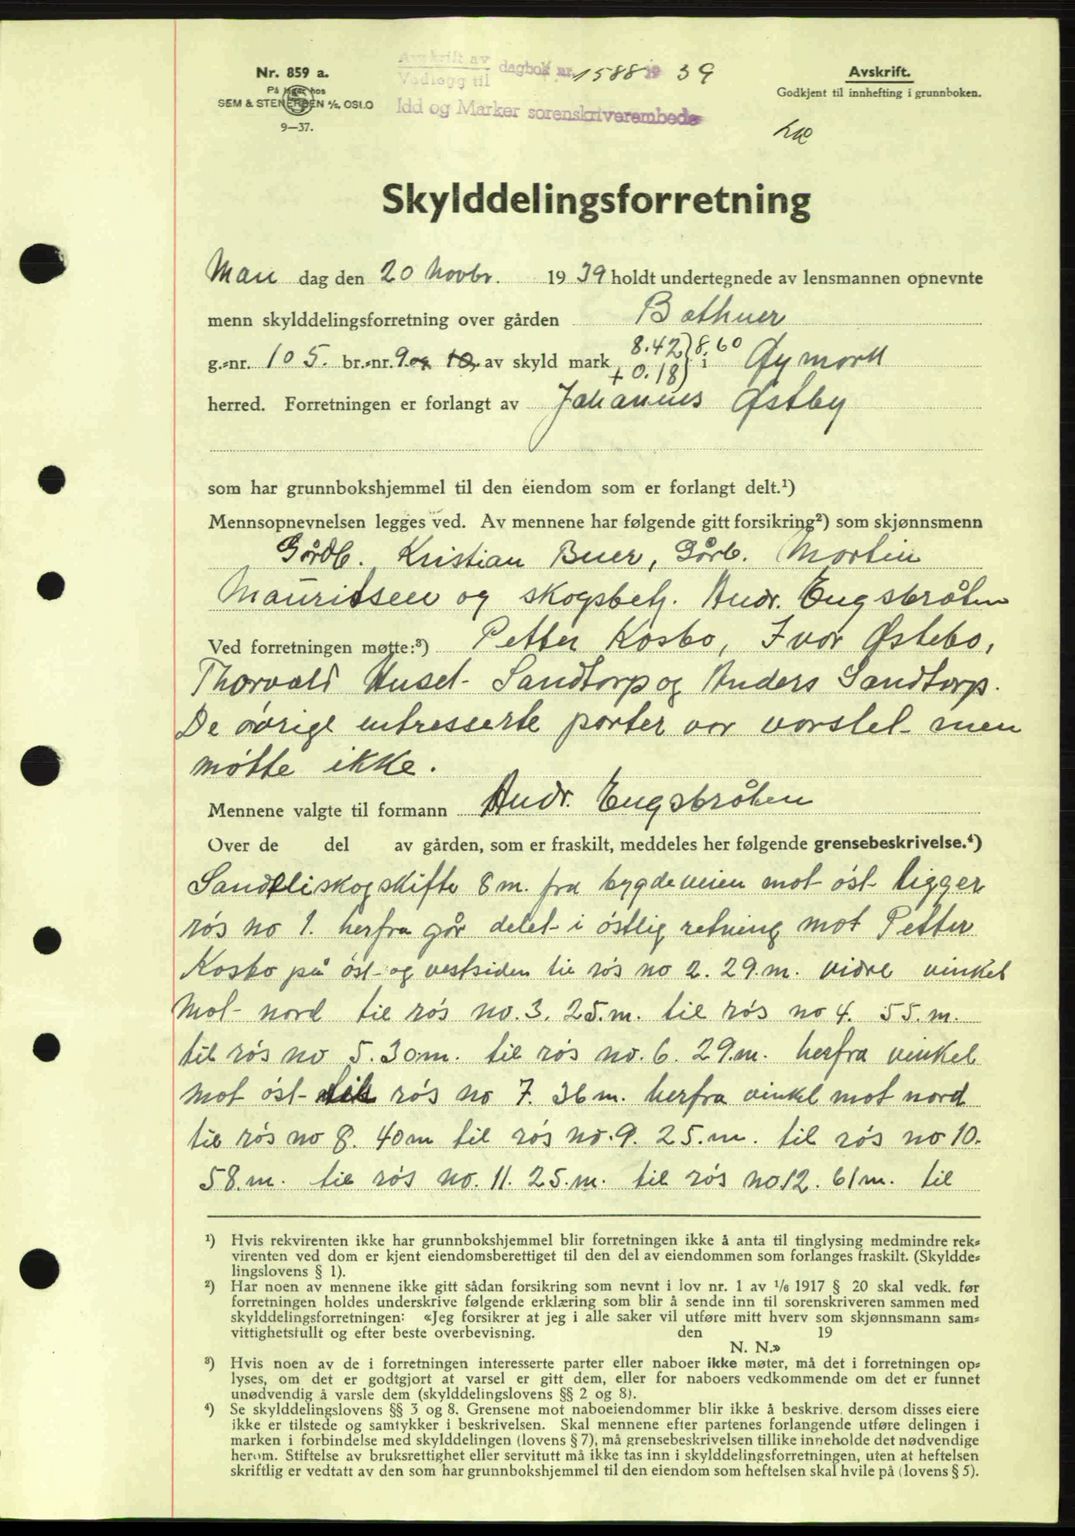 Nr. 859 a.
På lager hos
SEM & STENERSEN A/S, OSLO
9—37.
Avskrift av
Vedlegg til
dagbok nr. 1588 19 39
Idd og Marker sorenskriverembede
Avskrift.
Godkjent til innhefting i grunnboken.
Skylddelingsforretning
Man dag den 20 Novbr. 19 39 holdt undertegnede av lensmannen opnevnte
menn skylddelingsforretning over gården Bøthner
g.=nr. 105. br.=nr. 9 og 10, av skyld mark 8.42 + 0.18 } 8.60 i Øymark
herred. Forretningen er forlangt av Johannes Østby
som har grunnbokshjemmel til den eiendom som er forlangt delt.¹)
Mennsopnevnelsen legges ved. Av mennene har følgende gitt forsikring²) som skjønnsmenn
Gårdb. Kristian Buer, Gårb. Martin
Mauritseen og skogsbetj. Andr. Engsbråten
Ved forretningen møtte:³) Petter Kosbo, Ivar Østebo,
Thorvald Huset-Sandtorp og Anders Sandtorp.
De øvrige intresserte parter var varslet men
møtte ikke.
Mennene valgte til formann Andr. Engsbråten
Over de del av gården, som er fraskilt, meddeles her følgende grensebeskrivelse.⁴)
Sandliskogskifte 8 m. fra bygdeveien mot øst ligger
røs no 1. herfra går delet i østlig retning mot Petter
Kosbo på øst- og vestsiden til røs no 2. 29.m. vidre vinkel
mot nord til røs no. 3. 25.m. til røs no 4. 55.m.
til røs no 5. 30m. til røs no. 6. 29.m. herfra vinkel
mot øst til røs no 7. 36 m. herfra vinkel mot nord
til røs no 8. 40m til røs no. 9. 25.m. til røs no 10.
58.m. til røs no. 11. 25.m. til røs no 12. 61m. til
¹) Hvis rekvirenten ikke har grunnbokshjemmel blir forretningen ikke å anta til tinglysing medmindre rek=
virenten ved dom er kjent eiendomsberettiget til den del av eiendommen som forlanges fraskilt. (Skyldde=
lingslovens § 1).
²) Har noen av mennene ikke gitt sådan forsikring som nevnt i lov nr. 1 av 1/6 1917 § 20 skal vedk. før
forretningen holdes underskrive følgende erklæring som blir å sende inn til sorenskriveren sammen med
skylddelingsforretningen: «Jeg forsikrer at jeg i alle saker vil utføre mitt hverv som skjønnsmann sam=
vittighetsfullt og efter beste overbevisning. den 19
N. N.»
³) Hvis noen av de i forretningen interesserte parter eller naboer ikke møter, må det i forretningen op=
lyses, om det er godtgjort at varsel er gitt dem, eller for naboers vedkommende om det er funnet
unødvendig å varsle dem (skylddelingslovens §§ 2 og 8).
⁴) Se skylddelingslovens §§ 3 og 8. Grensene mot naboeiendommer blir ikke å beskrive, dersom disses eiere
ikke er tilstede og samtykker i beskrivelsen. Skal mennene efter partenes forlangende utføre delingen i
marken i forbindelse med skylddelingen (lovens § 7), må grensebeskrivelsen tillike inneholde det nødvendige
herom. Stiftelse av bruksrettighet eller servitutt må ikke tas inn i skylddelingsforretningen, uten at heftelsen
skriftlig er vedtatt av den som har grunnbokshjemmel til den eiendom som heftelsen skal hvile på (lovens § 5).